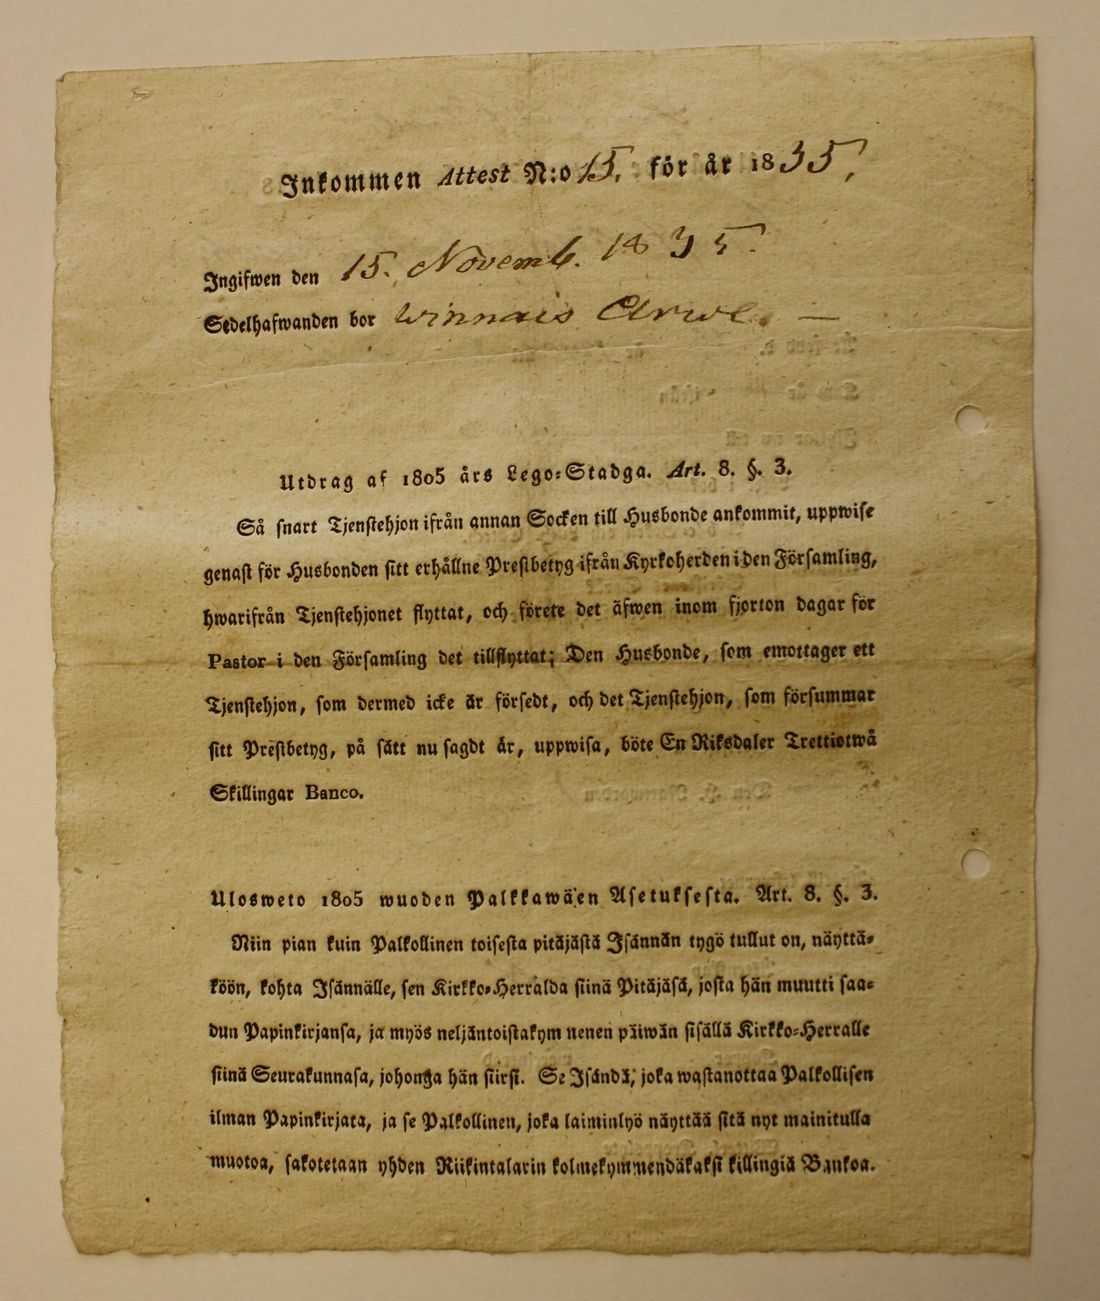 Inkommen Attest N:o 15. för år 1835,
Ingifwen den 15. Novemb. 1835.
Sedelhafwanden bor Winnais Arwe. —
Utdrag af 1805 års Lego-Stadga. Art. 8. §. 3.
Så snart Tjenstehjon ifrån annan Socken till Husbonde ankommit, uppwise
genast för Husbonden sitt erhållne Prestbetyg ifrån Kyrkoherden i den Församling,
hwarifrån Tjenstehjonet flyttat, och förete det äfwen inom fjorton dagar för
Pastor i den Församling det tillflyttat; Den Husbonde, som emottager ett
Tjenstehjon, som dermed icke är försedt, och det Tjenstehjon, som försummar
sitt Prestbetyg, på sätt nu sagdt är, uppwisa, böte En Riksdaler Trettiotwå
Skillingar Banco.
Ulosweto 1805 wuoden Palkkawäen Asetuksesta. Art. 8. §. 3.
Niin pian kuin Palkollinen toisesta pitäjästä Isännän tygö tullut on, näyttä-
köön, kohta Isännälle, sen Kirkko-Herralda siinä Pitäjäsä, josta hän muutti saa-
dun Papinkirjansa, ja myös neljäntoistakym nenen päiwän sisällä Kirkko-Herralle
siinä Seurakunnasa, johonga hän siirsi. Se Isändä, joka wastanottaa Palkollisen
ilman Papinkirjata, ja se Palkollinen, joka laiminlyö näyttää sitä nyt mainitulla
muotoa, sakotetaan yhden Riikintalarin kolmekymmendäkaksi killingiä Bankoa.